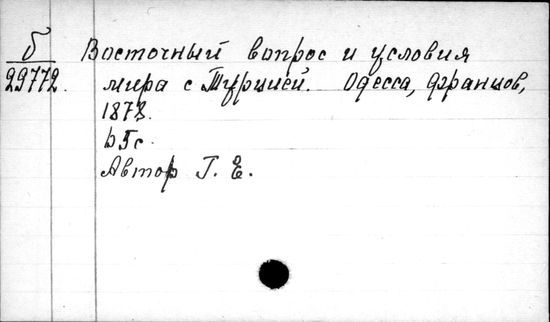 б Восточный вопрос и условия
29772. мира с Турцией. Одесса, Францов,
1878.
с.
Автор Г. Е.